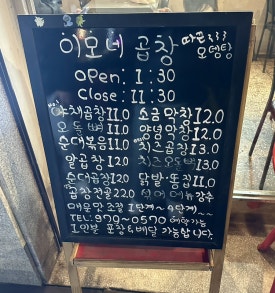 이모네 곱창
따끈 ξξξ
오뎅탕
OPEN: 1:30
Close: 11:30
야채곱창 11.0 소금막창 12.0
오돌뼈 11.0 양념막창 12.0
순대볶음 11.0 치즈곱창 13.0
알곱창 12.0 치즈오돌뼈 13.0
순대곱창 12.0 닭발·똥집 11.0
곱창전골 22.0 메뉴 다수
매운맛 조절 1단계~4단계~~
TEL: 979-0570 예약가능
1인분 포장&배달 가능합니다.